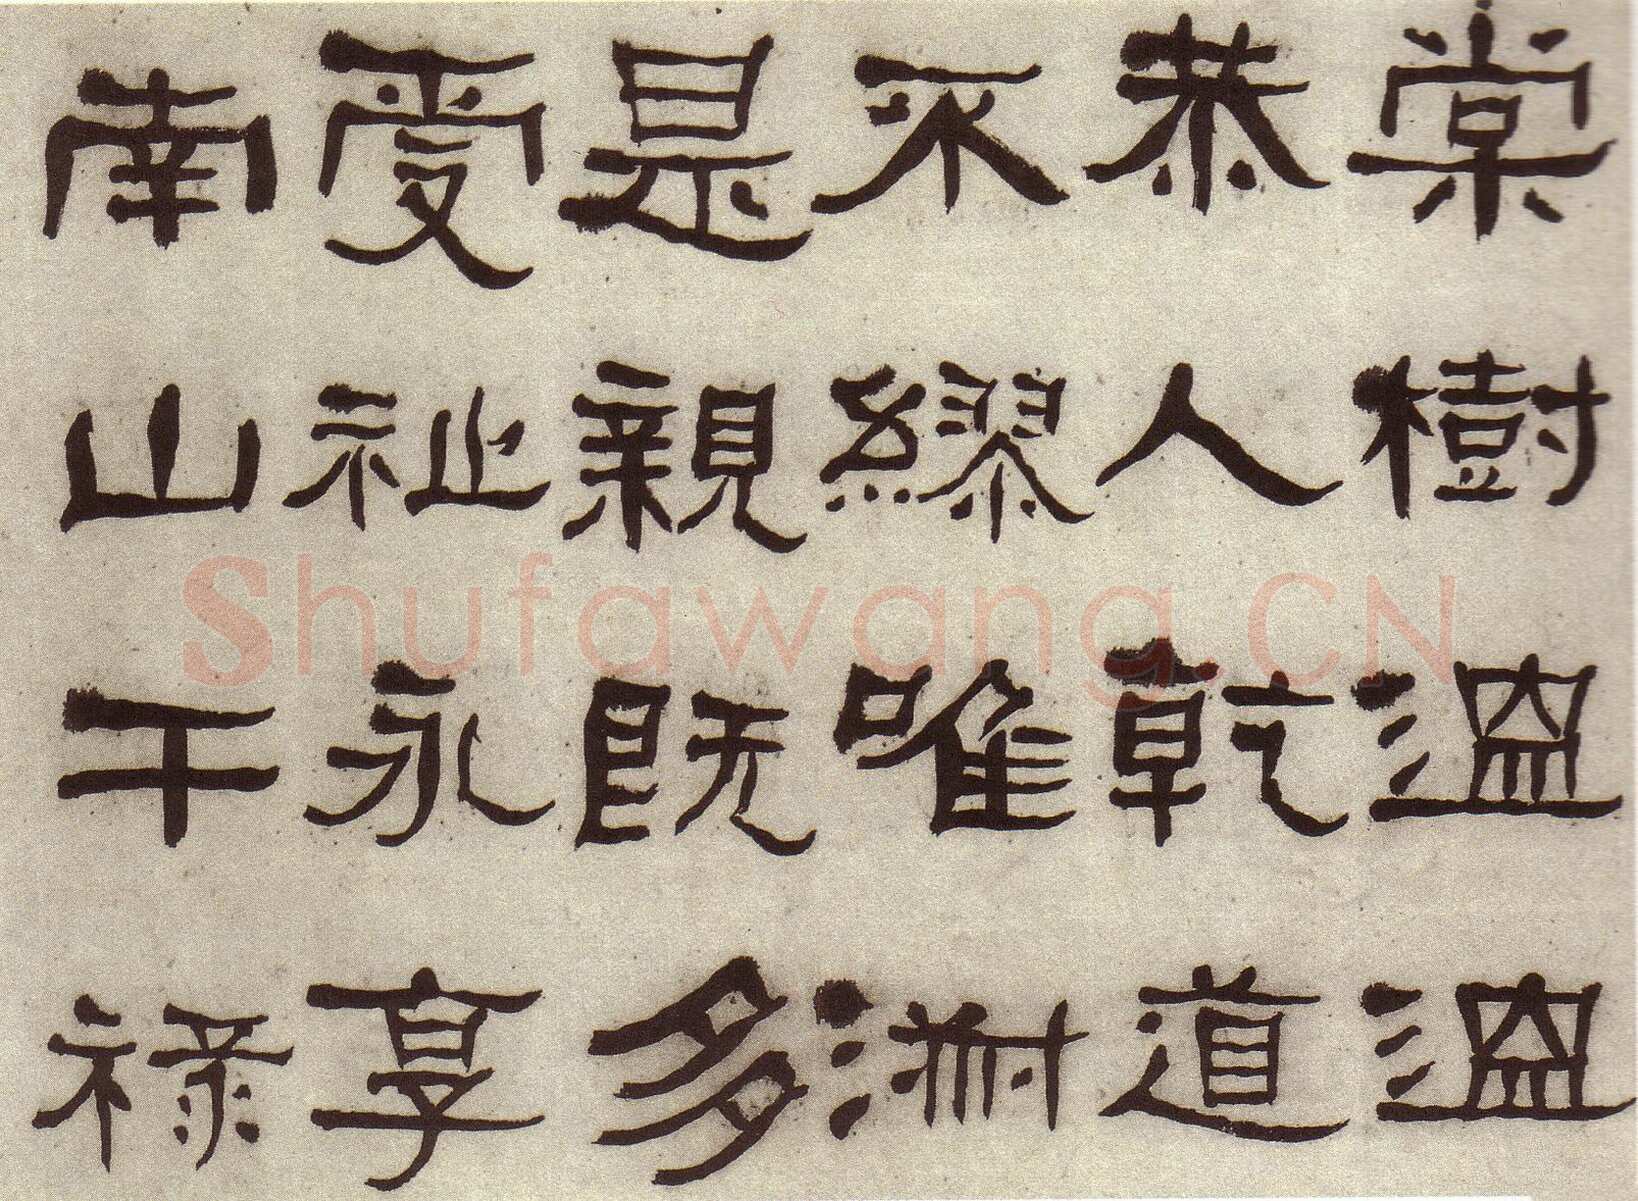 棠樹溫溫
恭人乾道
不繆唯淑
是親既多
受祉永享
南山干祿
Shufawang.CN